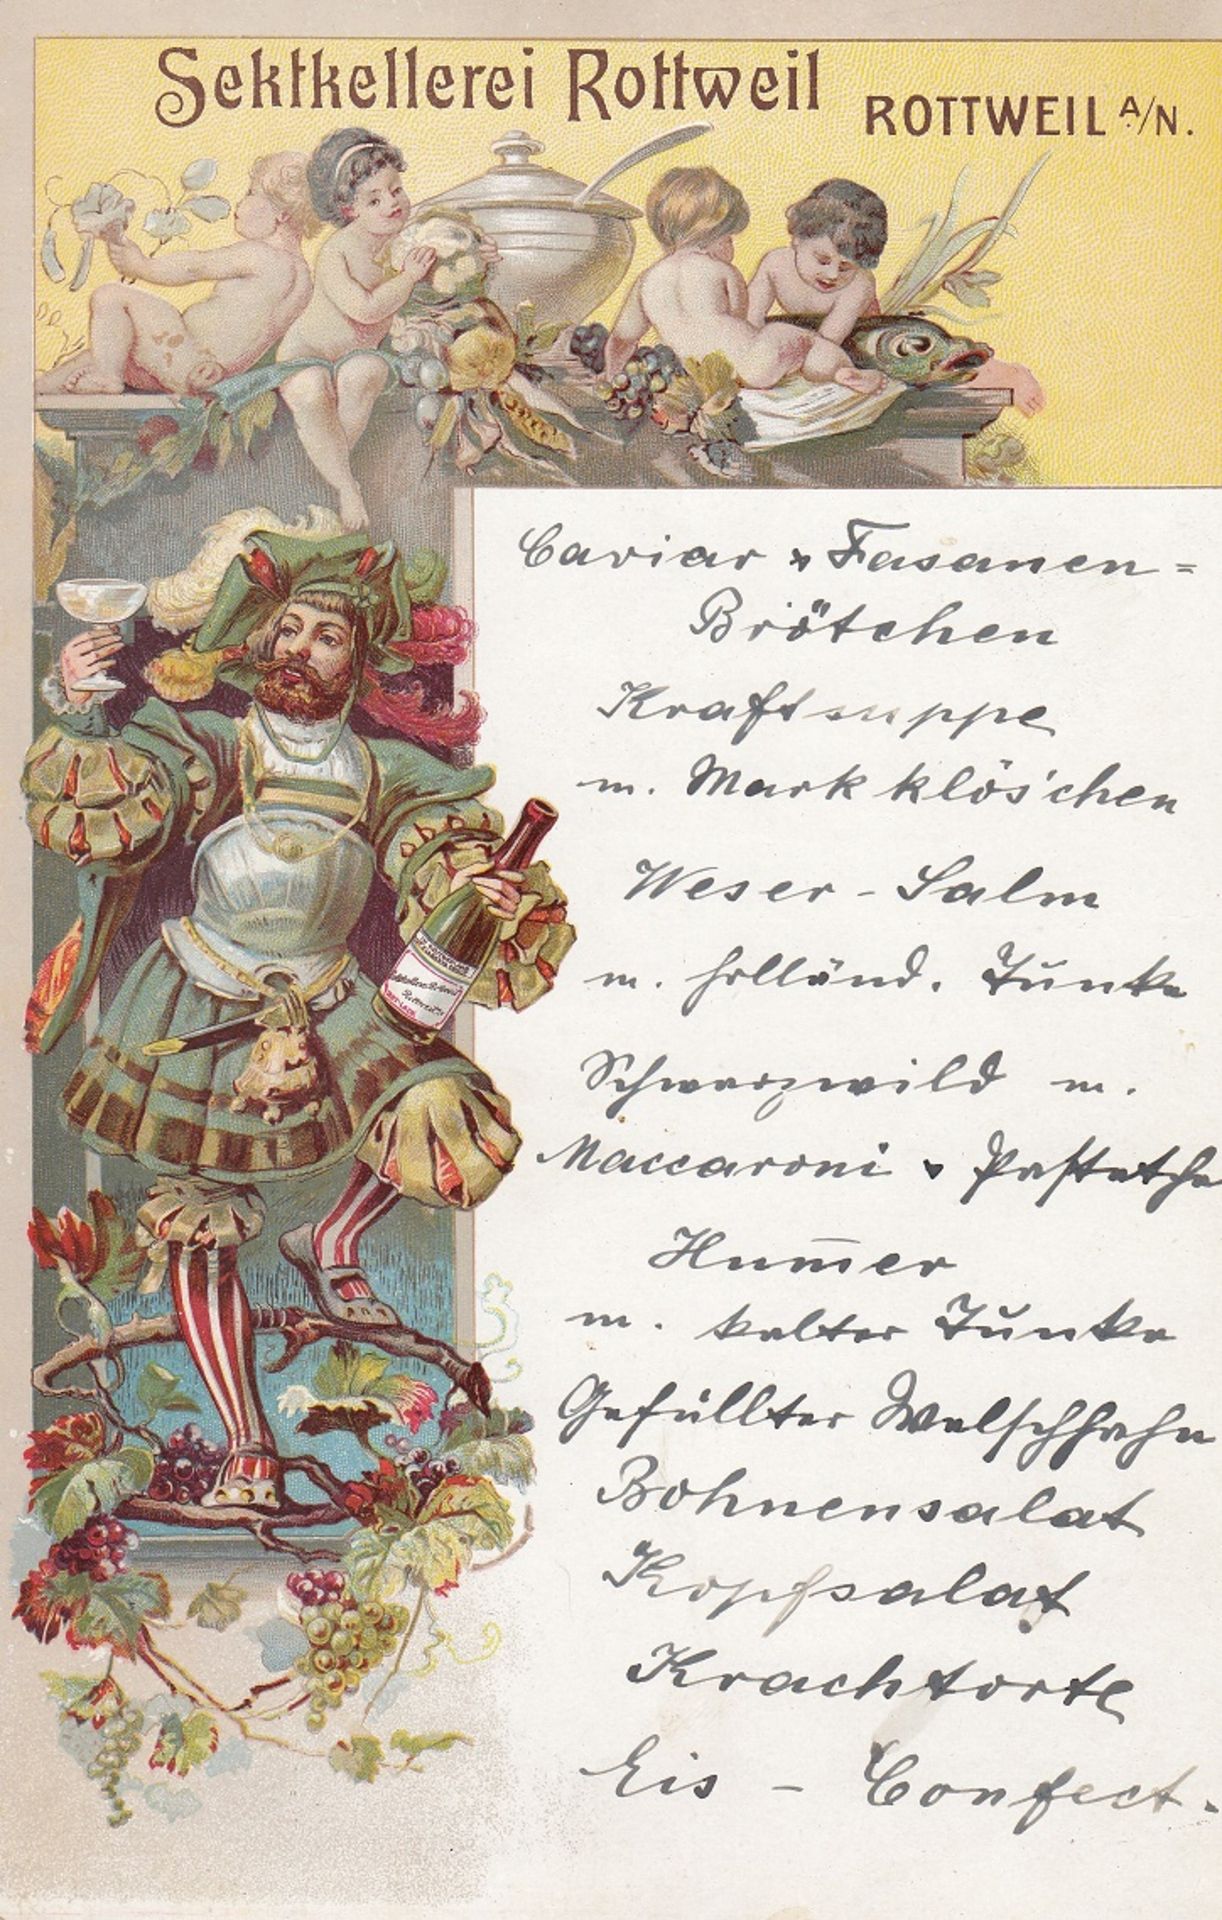 Sektkellerei Rottweil
ROTTWEIL A/N.
Caviar & Fasanen=
Brötchen
Kraftsuppe
m. Markklöschen
Weser-Salm
m. holländ. Tunke
Schwarzwild m.
Maccaroni & Pastetche
Hum̄er
m. kalter Tunke
Gefüllter Welschhahn
Bohnensalat
Kopfsalat
Krachtorte
Eis - Confect.